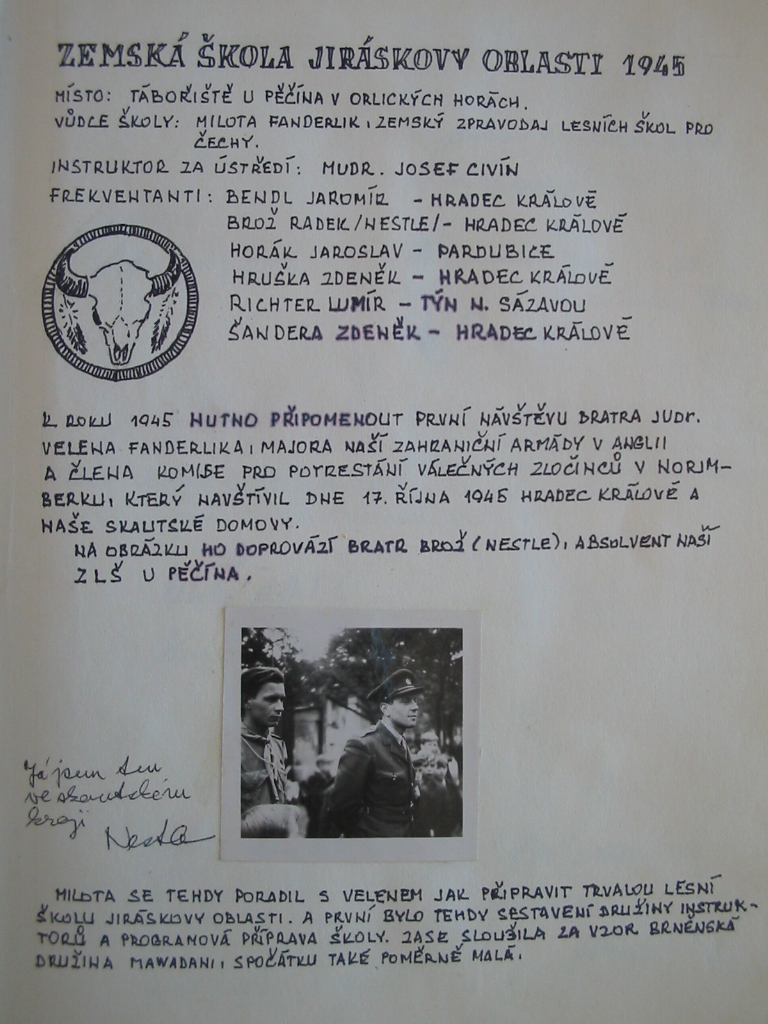 ZEMSKÁ ŠKOLA JIRÁSKOVY OBLASTI 1945
MÍSTO: TÁBOŘIŠTĚ U PĚČÍNA V ORLICKÝCH HORÁCH.
VŮDCE ŠKOLY: MILOTA FANDERLIK, ZEMSKÝ ZPRAVODAJ LESNÍCH ŠKOL PRO
ČECHY.
INSTRUKTOR ZA ÚSTŘEDÍ: MUDR. JOSEF CIVÍN
FREKVENTANTI: BENDL JAROMÍR - HRADEC KRÁLOVÉ
BROŽ RADEK /NESTLE/- HRADEC KRÁLOVÉ
HORÁK JAROSLAV - PARDUBICE
HRUŠKA ZDENĚK - HRADEC KRÁLOVÉ
RICHTER LUMÍR - TÝN N. SÁZAVOU
ŠANDERA ZDENĚK - HRADEC KRÁLOVÉ
K ROKU 1945 NUTNO PŘIPOMENOUT PRVNÍ NÁVŠTĚVU BRATRA JUDr.
VELENA FANDERLIKA, MAJORA NAŠÍ ZAHRANIČNÍ ARMÁDY V ANGLII
A ČLENA KOMISE PRO POTRESTÁNÍ VÁLEČNÝCH ZLOČINCŮ V NORIM-
BERKU, KTERÝ NAVŠTÍVIL DNE 17. ŘÍJNA 1945 HRADEC KRÁLOVÉ A
NAŠE SKAUTSKÉ DOMOVY.
NA OBRÁZKU HO DOPROVÁZÍ BRATR BROŽ (NESTLE), ABSOLVENT NAŠÍ
ZLŠ U PĚČÍNA.
Já jsem ten
ve skautském
kroji
Nestle
MILOTA SE TEHDY PORADIL S VELENEM JAK PŘIPRAVIT TRVALOU LESNÍ
ŠKOLU JIRÁSKOVY OBLASTI. A PRVNÍ BYLO TEHDY SESTAVENÍ DRUŽINY INSTRUK-
TORŮ A PROGRAMOVÁ PŘÍPRAVA ŠKOLY. ZASE SLOUŽILA ZA VZOR BRNĚNSKÁ
DRUŽINA MAWADANI, SPOČÁTKU TAKÉ POMĚRNĚ MALÁ.